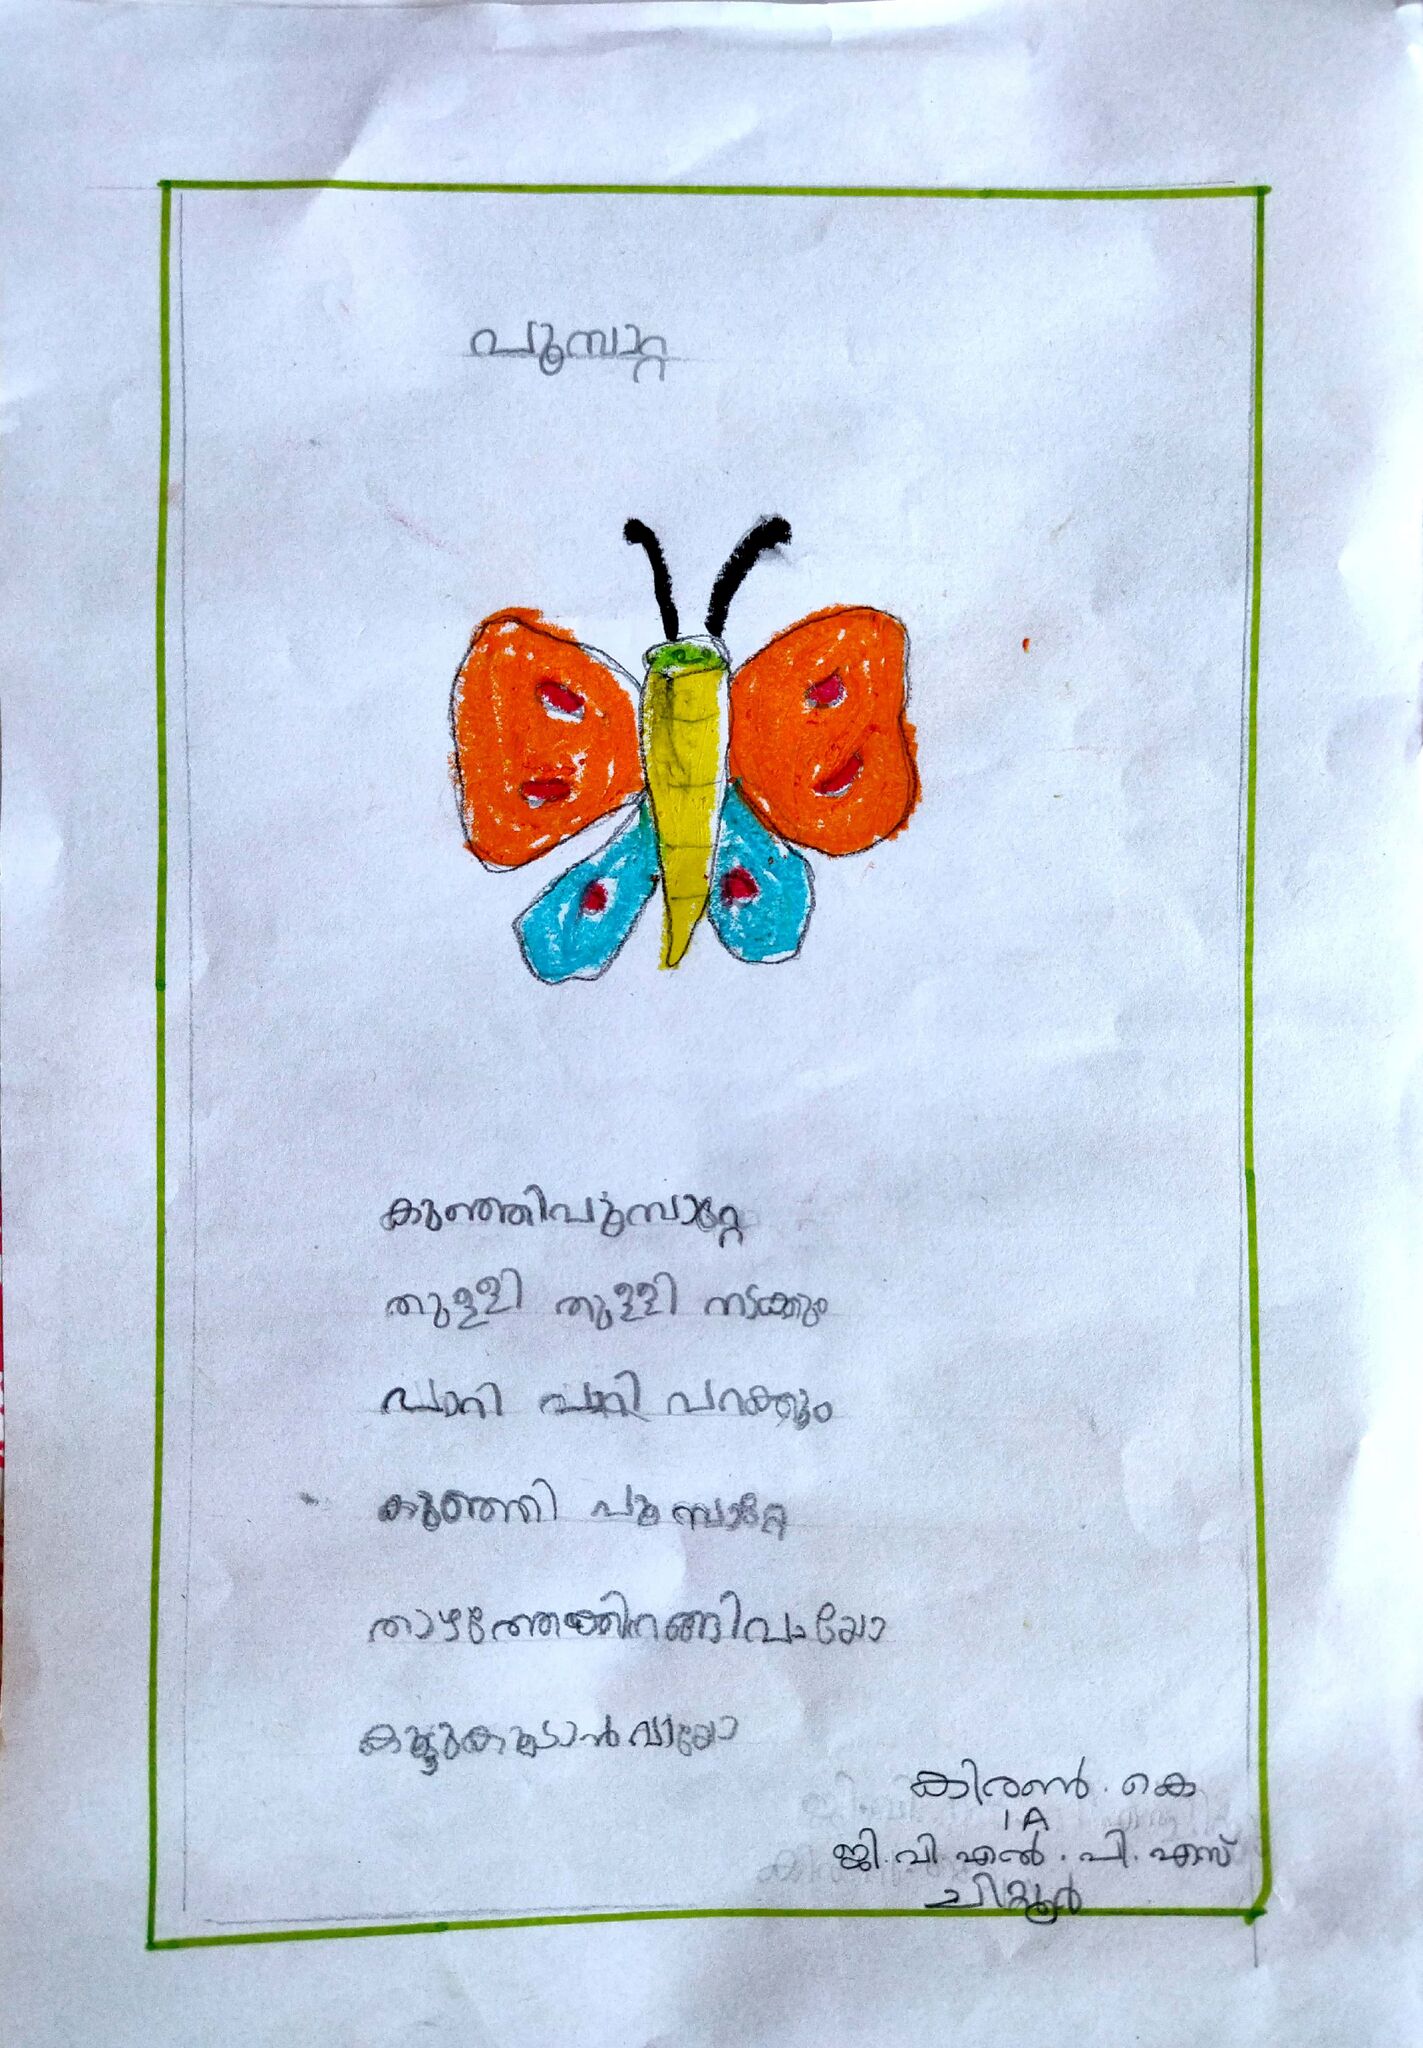 പൂമ്പാറ്റ
കുഞ്ഞിപൂമ്പാറ്റേ
തുള്ളി തുള്ളി നടക്കും
പാറി പാറി പറക്കും
കുഞ്ഞി പൂമ്പാറ്റേ
താഴത്തേക്കിറങ്ങിവായോ
കൂട്ടുകൂടാൻ വായോ
കിരൺ. കെ
1 A
ജി. വി. എൽ. പി. എസ്
ചിറ്റൂർ